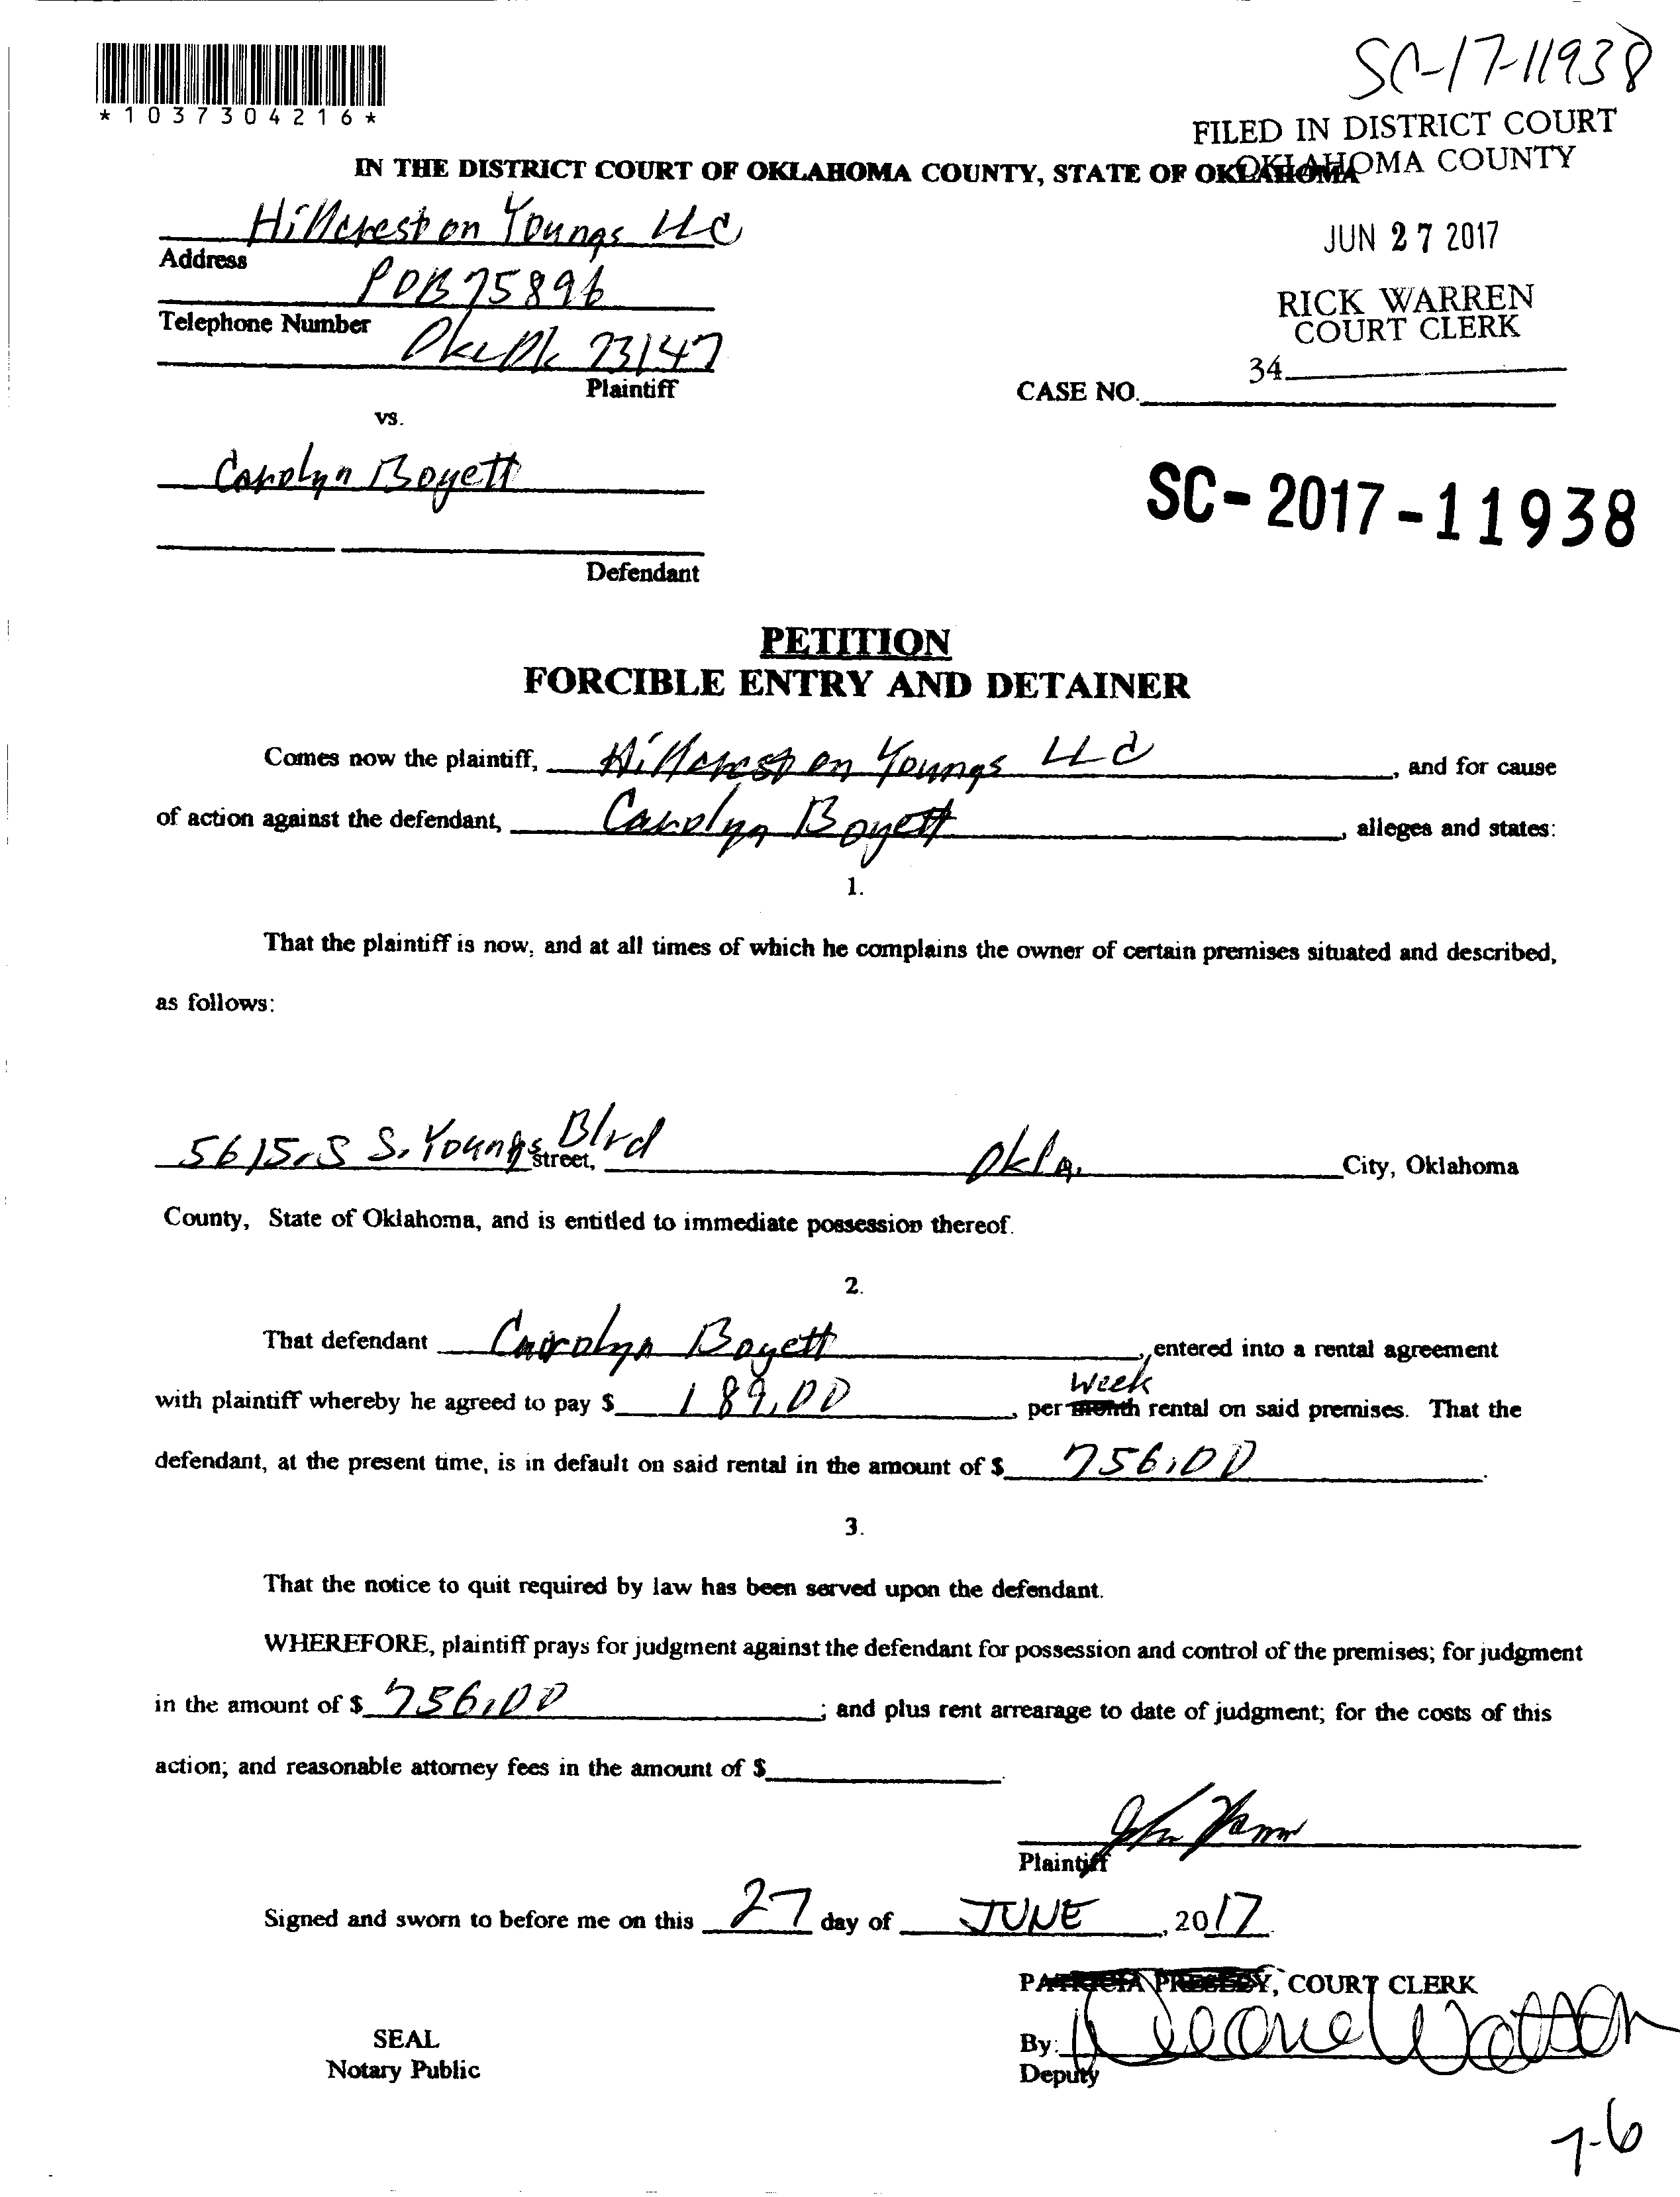 SC-17-11938
*1037304216*
FILED IN DISTRICT COURT
OKLAHOMA COUNTY
IN THE DISTRICT COURT OF OKLAHOMA COUNTY, STATE OF OKLAHOMA
Hillcrest on Youngs LLC
JUN 27 2017
Address
POB 75896
RICK WARREN
COURT CLERK
Telephone Number
73147
34
Plaintiff
CASE NO.
vs.
Carolyn Boyett
SC-2017-11938
Defendant
PETITION
FORCIBLE ENTRY AND DETAINER
Comes now the plaintiff, Hillcrest on Youngs LLC, and for cause
of action against the defendant, Carolyn Boyett, alleges and states:
1.
That the plaintiff is now, and at all times of which he complains the owner of certain premises situated and described,
as follows:
5615.S S. Youngs Blvd street, Okla. City, Oklahoma
County, State of Oklahoma, and is entitled to immediate possession thereof.
2.
That defendant Carolyn Boyett, entered into a rental agreement
Week
with plaintiff whereby he agreed to pay $ 189.00, per month rental on said premises. That the
defendant, at the present time, is in default on said rental in the amount of $ 756.00.
3.
That the notice to quit required by law has been served upon the defendant.
WHEREFORE, plaintiff prays for judgment against the defendant for possession and control of the premises; for judgment
in the amount of $ 756.00; and plus rent arrearage to date of judgment; for the costs of this
action; and reasonable attorney fees in the amount of $.
Plaintiff
Signed and sworn to before me on this 27 day of JUNE, 2017.
PATRICIA PRESLEY, COURT CLERK
SEAL
By:
Notary Public
Deputy
7-6